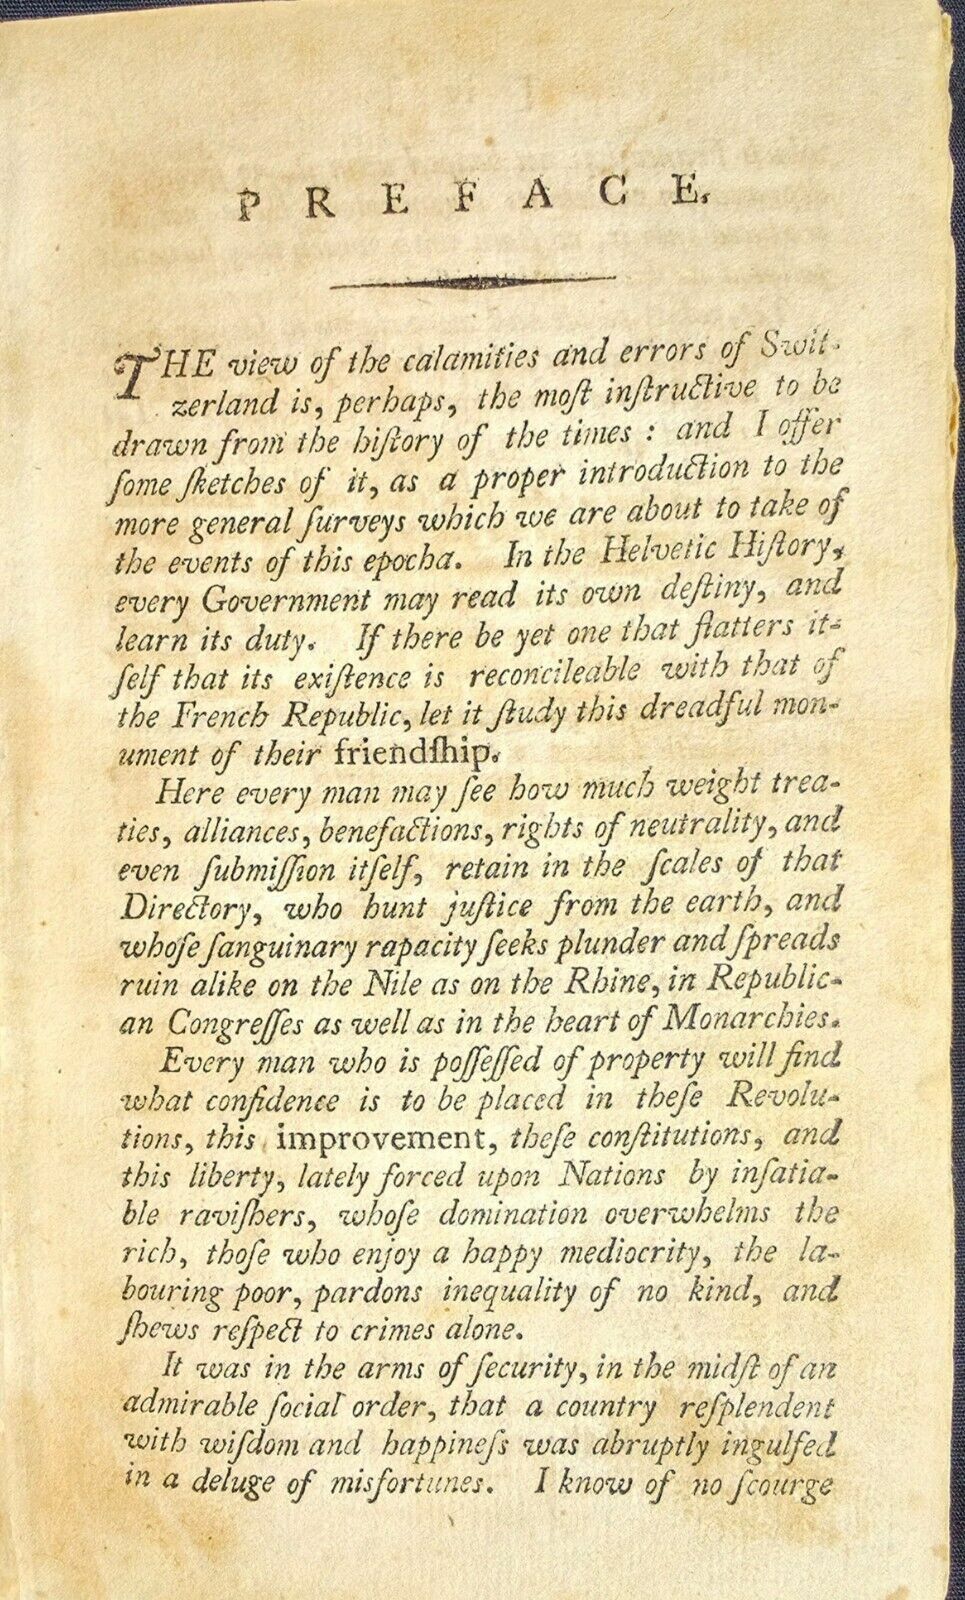 PREFACE.
THE view of the calamities and errors of Swit-
zerland is, perhaps, the moſt inſtructive to be
drawn from the hiſtory of the times : and I offer
ſome ſketches of it, as a proper introduction to the
more general ſurveys which we are about to take of
the events of this epocha. In the Helvetic Hiſtory,
every Government may read its own deſtiny, and
learn its duty. If there be yet one that flatters it-
ſelf that its exiſtence is reconcileable with that of
the French Republic, let it ſtudy this dreadful mon-
ument of their friendſhip.
Here every man may ſee how much weight trea-
ties, alliances, benefactions, rights of neutrality, and
even ſubmiſſion itſelf, retain in the ſcales of that
Directory, who hunt juſtice from the earth, and
whoſe ſanguinary rapacity ſeeks plunder and ſpreads
ruin alike on the Nile as on the Rhine, in Republic-
an Congreſſes as well as in the heart of Monarchies.
Every man who is poſſeſſed of property will find
what confidence is to be placed in theſe Revolu-
tions, this improvement, theſe conſtitutions, and
this liberty, lately forced upon Nations by inſatia-
ble raviſhers, whoſe domination overwhelms the
rich, thoſe who enjoy a happy mediocrity, the la-
bouring poor, pardons inequality of no kind, and
ſhews reſpect to crimes alone.
It was in the arms of ſecurity, in the midſt of an
admirable ſocial order, that a country reſplendent
with wiſdom and happineſs was abruptly ingulfed
in a deluge of misfortunes. I know of no ſcourge